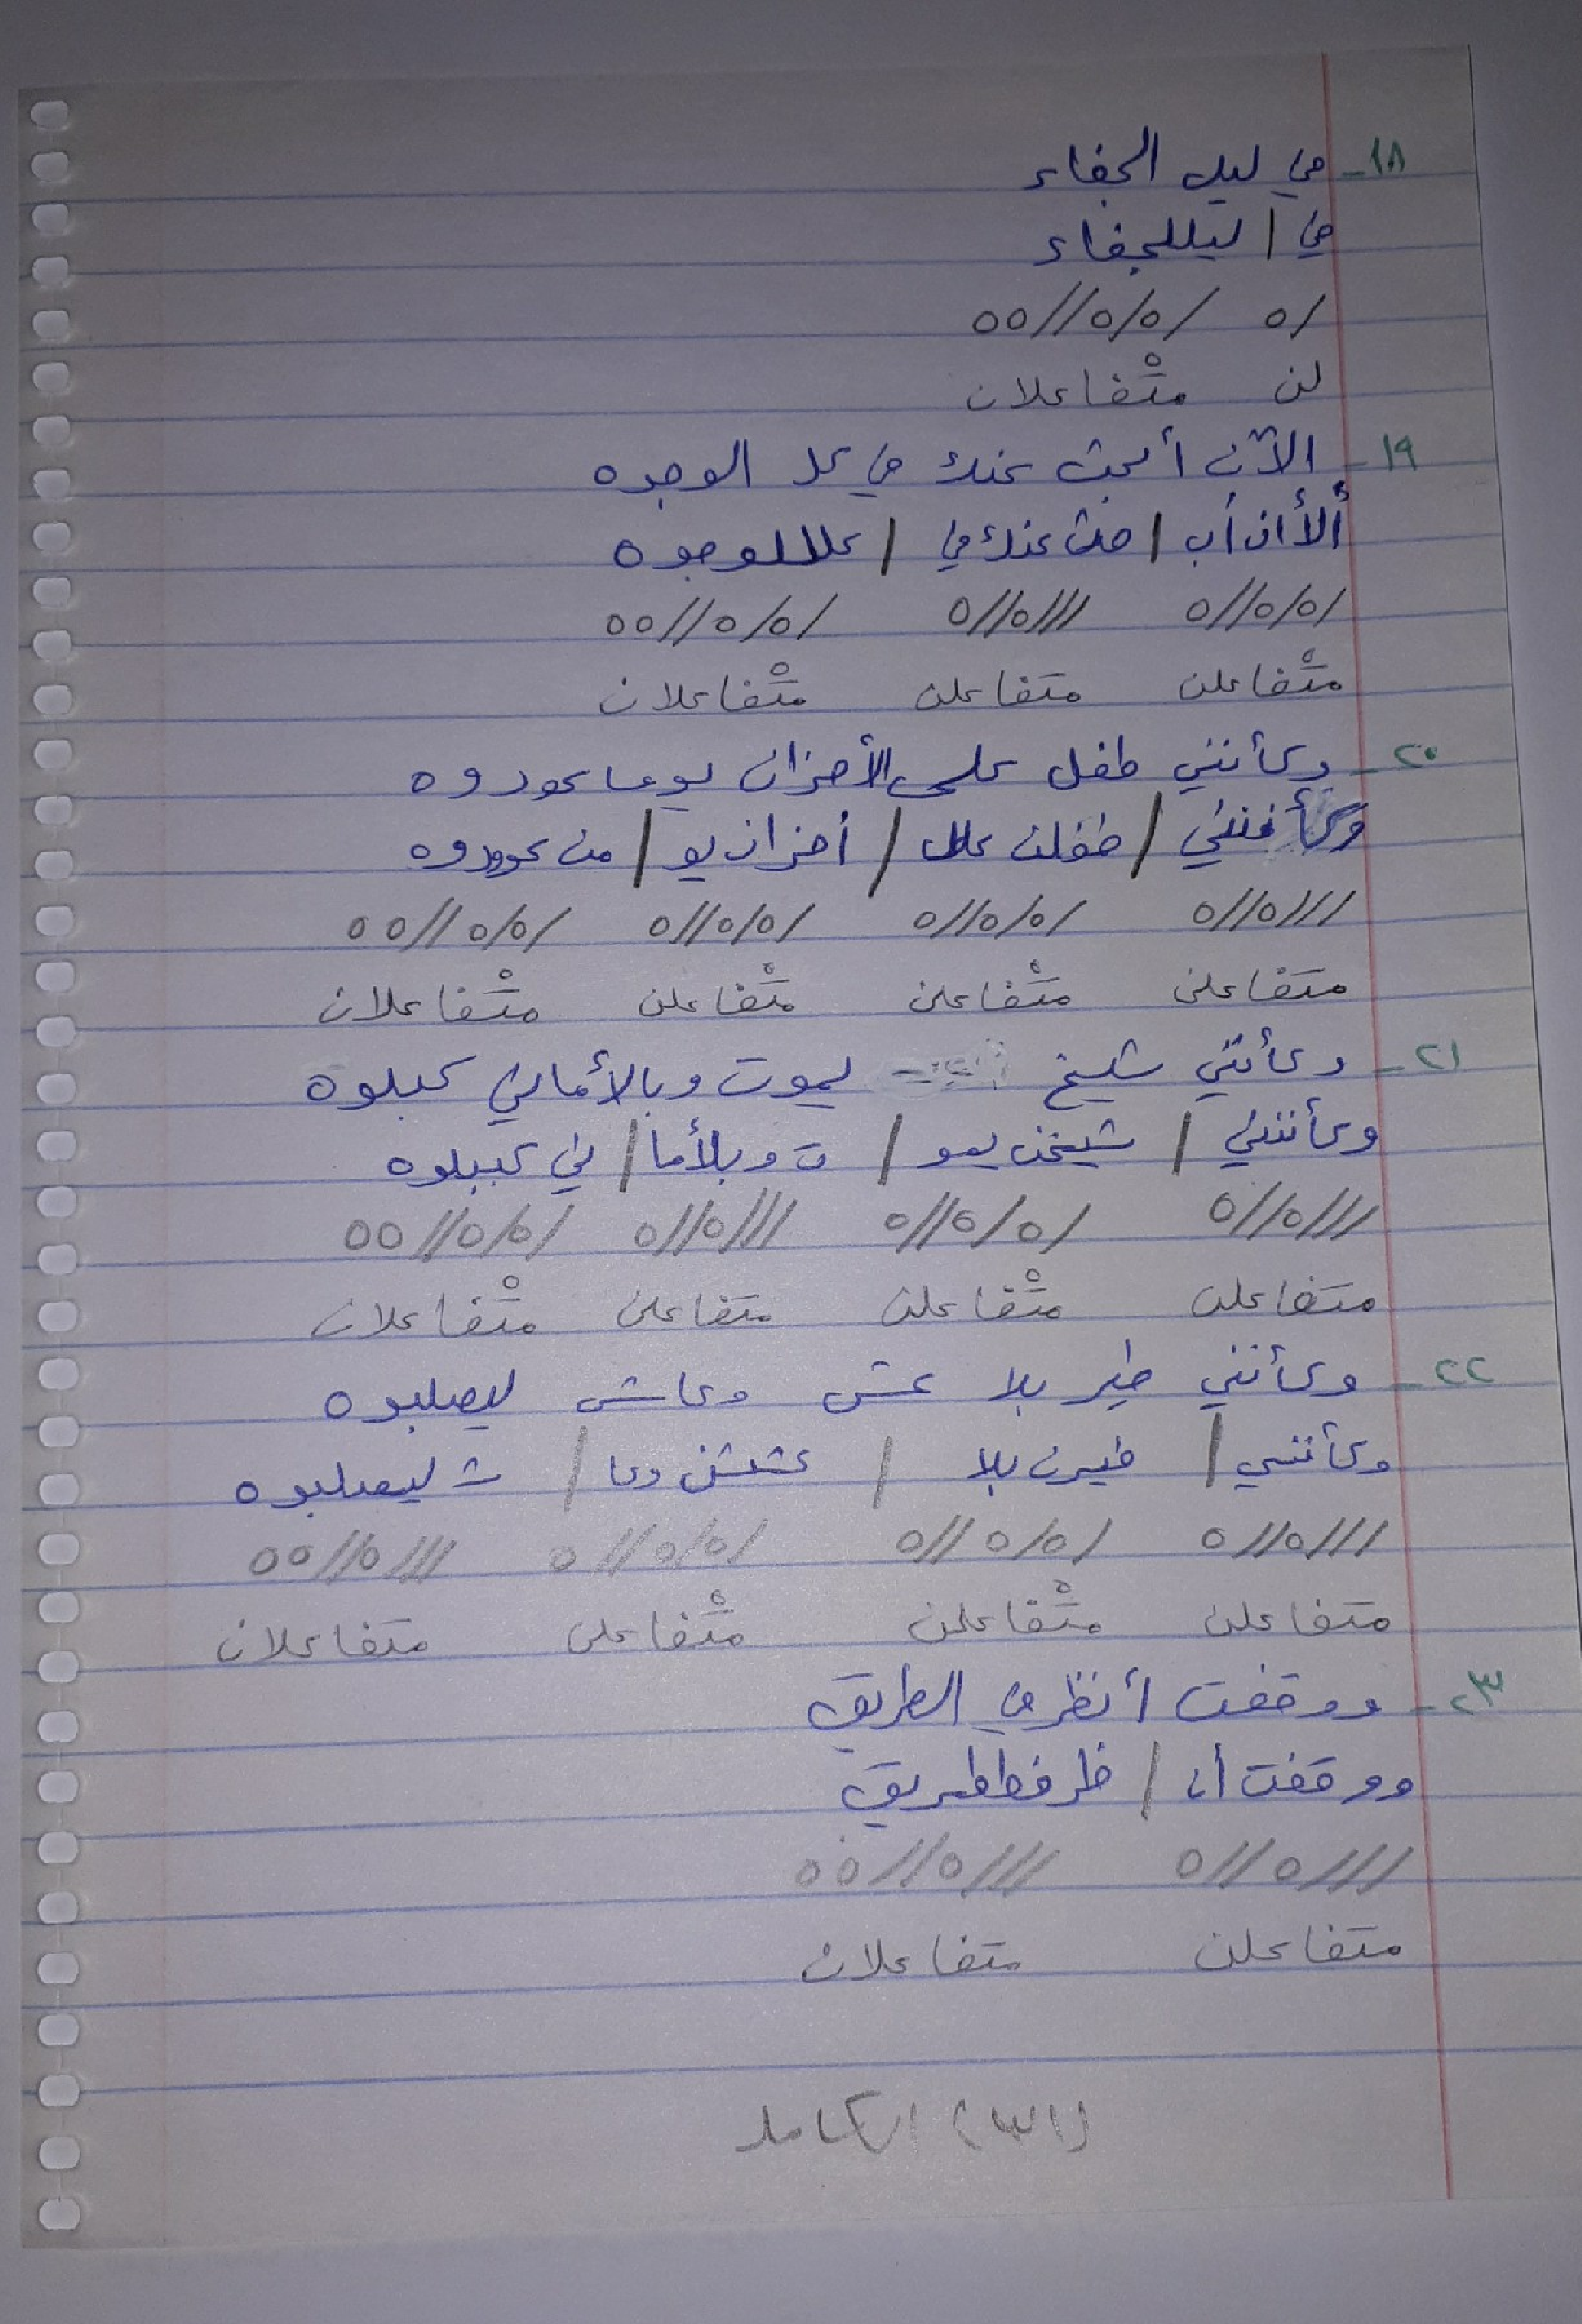 ١٨- في ليل الجفاء
في / ليللجفاء
/ه /ه/ه//هه
لن متْفاعلان
١٩- الآن أبحث عنك في كل الوجوه
ألأان أب / حث عنك في / كللوجوه
/ه/ه//ه ///ه//ه /ه/ه//هه
متْفاعلن متفاعلن متْفاعلان
٢٠- وكأنني طفل على الأحزان يوما عودوه
وكأننني / طفلن علل / أحزان يو / من عوودوه
///ه//ه /ه/ه//ه /ه/ه//ه /ه/ه//هه
متفاعلن متْفاعلن متْفاعلن متْفاعلان
٢١- وكأنني شيخ يموت وبالأماني كبلوه
وكأنني / شيخن يمو / ت وبلأما / ني كببلوه
///ه//ه /ه/ه//ه ///ه//ه /ه/ه//هه
متفاعلن متْفاعلن متفاعلن متْفاعلان
٢٢- وكأنني طير بلا عش وعاش ليصلبوه
وكأننني / طيرن بلا / عششن وعا / ش ليصلبوه
///ه//ه /ه/ه//ه /ه/ه//ه ///ه//هه
متفاعلن متْفاعلن متْفاعلن متفاعلان
٢٣- ووقفت أنظر في الطريق
ووقفت أن / ظر فططريق
///ه//ه ///ه//هه
متفاعلن متفاعلان
(٣١) الكامل